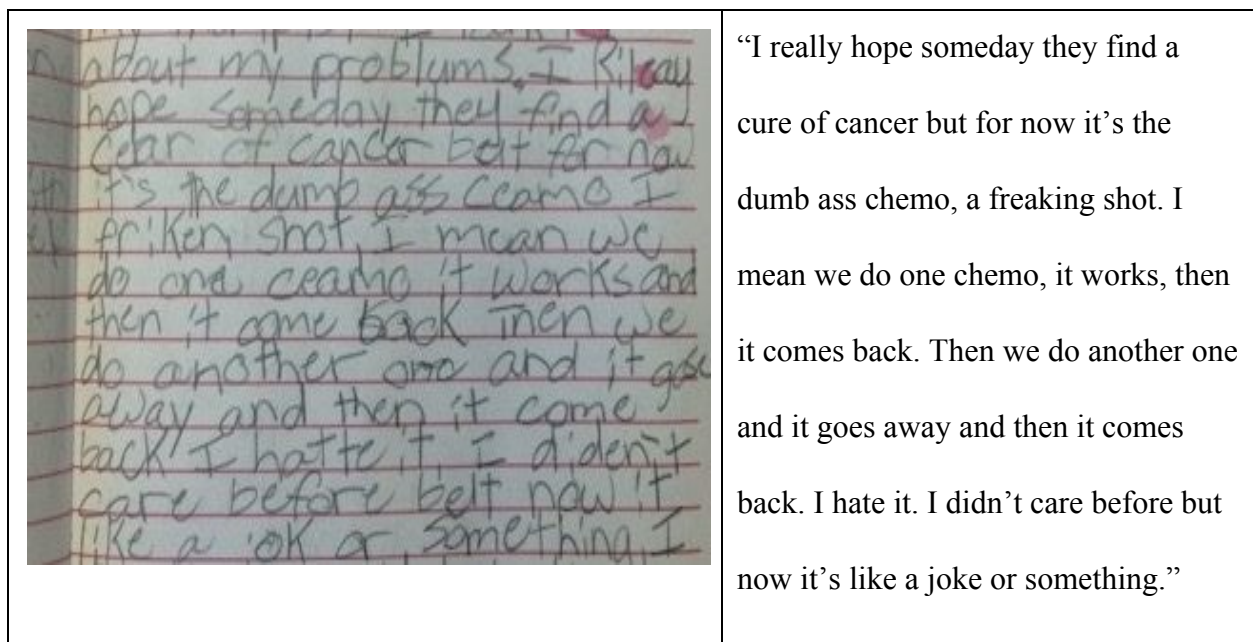 about my problums. I Rileay
hope someday they find a
cear of cancer beit for now
it's the dumb ass ceamo I
friken shot. I mean we
do one ceamo it works and
then it come back Then we
do another one and it gose
away and then it come
back I hatte it. I diden't
care before beit now it
like a jok or something. I
“I really hope someday they find a
cure of cancer but for now it’s the
dumb ass chemo, a freaking shot. I
mean we do one chemo, it works, then
it comes back. Then we do another one
and it goes away and then it comes
back. I hate it. I didn’t care before but
now it’s like a joke or something.”